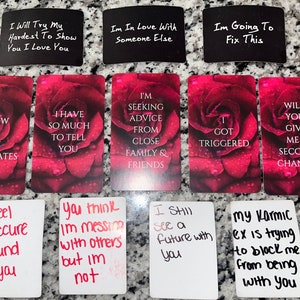 I Will Try My
Hardest To Show
You I Love You
Im In Love With
Someone Else
Im Going To
Fix This
I HAVE
SO MUCH TO
TELL
YOU
I'M
SEEKING
ADVICE
FROM
CLOSE
FAMILY &
FRIENDS
I
GOT
TRIGGERED
WILL
YOU
ME
SECO
CHAN
ATES
eel
ecure
und
you
you think
im messin
with others
but im
not
I Still
see a
future with
you
my Karmic
ex is trying
to block me
from being
with you